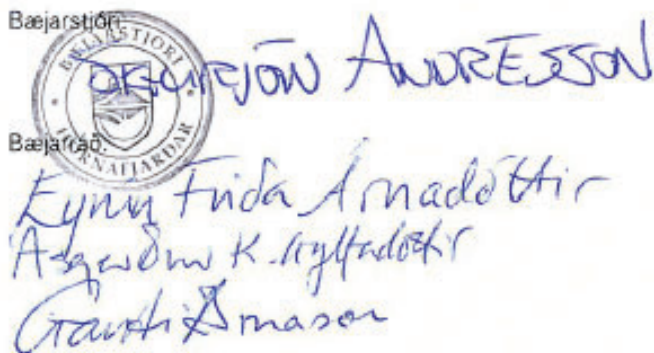 Bæjarstjóri:
BÆJARSTJÓRI HORNAFJARÐAR
SIGURJÓN ANDRÉSSON
Bæjarráð:
Eyrún Fríða Árnadóttir
Ásgerður K. Gylfadóttir
Gauti Árnason